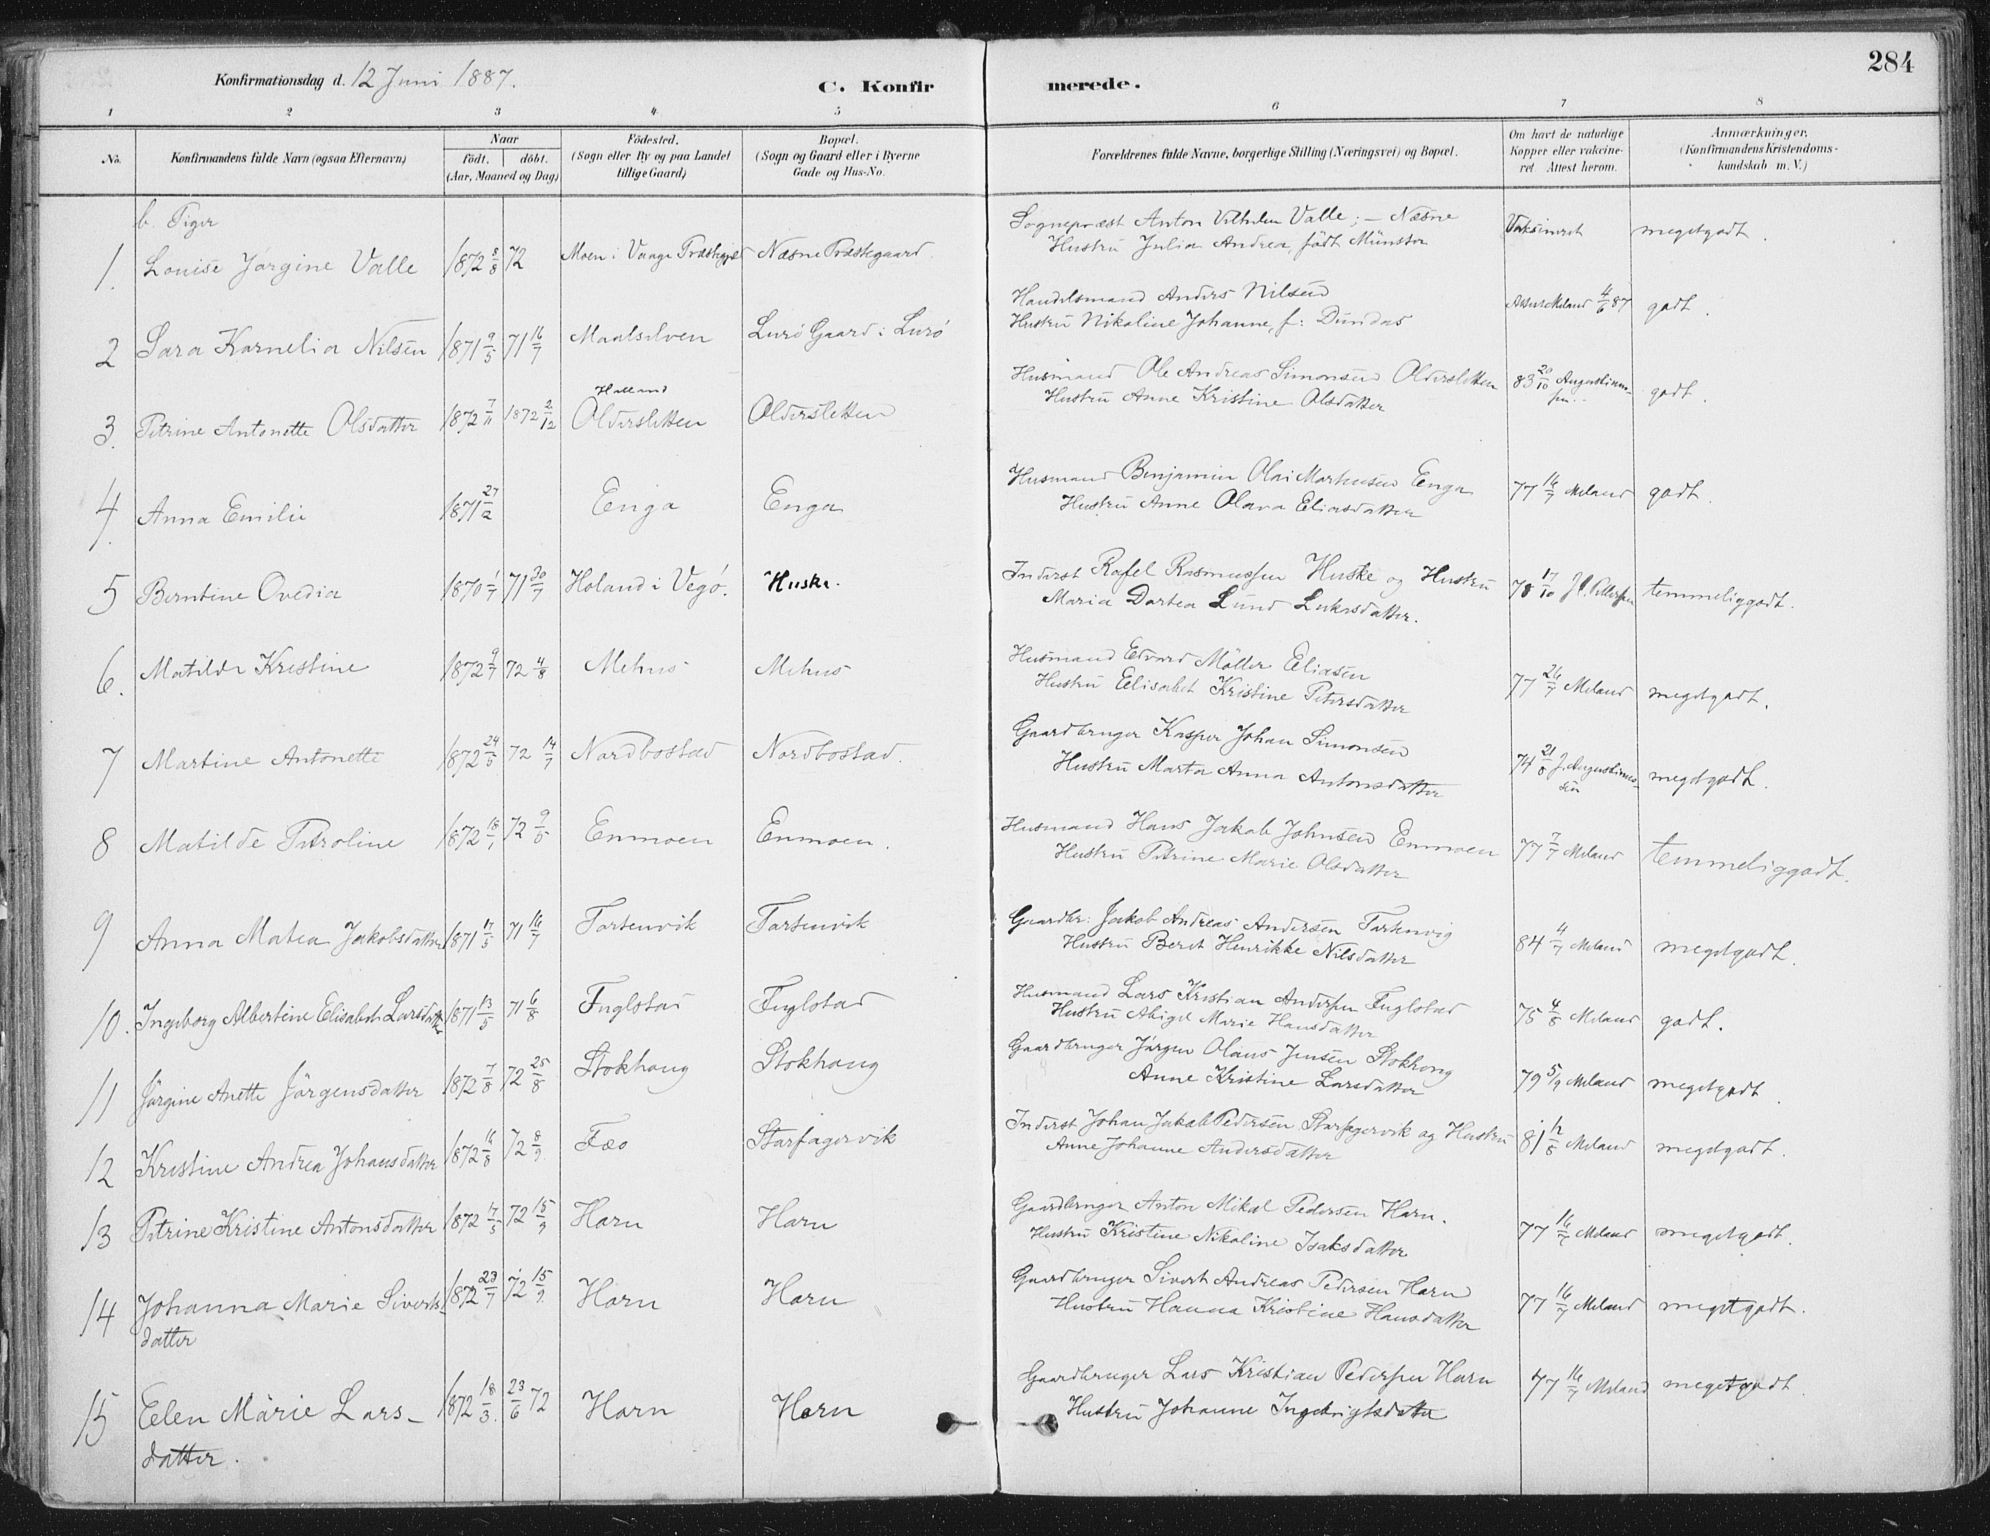 284
Konfirmationsdag d. 12 Juni 1887.
C. Konfirmerede.
1 2 3 4 5 6 7 8
No. Konfirmandens fulde Navn (ogsaa Efternavn) Naar født. døbt. (Aar, Maaned og Dag) Födested. (Sogn eller By og paa Landet tillige Gaard) Bopæl. (Sogn og Gaard eller i Byerne Gade og Hus-No. Forældrenes fulde Navne, borgerlige Stilling (Næringsvei) og Bopæl. Om havt de naturlige Kopper eller vakcineret Attest herom. Anmærkninger. (Konfirmandens Kristendomskundskab m. V.)
b. Piger
1. Louise Jørgine Valle 1872 8/8 72 Moen i Vaage Næsne Præstegaard Sognepræst Anton Vilhelm Valle; – Næsne Vaksineret megetgodt.
Hustru Julia Andrea, født Münster
2 Sara Kornelia Nilsen 1871 9/5 71 16/7 Maalselven Lurö Gaard i Lurö Handelsmand Anders Nilsen Meland 4/6 87 godt.
Hustru Nikoline Johanne, f: Dundas
3. Petrine Antonette Olsdatter 1872 7/11 1872 2/12 Oldersletten Oldersletten Husmand Ole Andreas Simonsen Oldersletten 83 20/10 godt.
Hustru Anne Kristine Olsdatter
4. Anna Emilie 1871 27/2 Enga Enga Husmand Benjamin Olai Markusen Enga 77 16/7 Meland godt.
Hustru Anne Olava Eliasdatter
5 Berntine Ovedia 1870 1/7 71 30/7 Holand i Vegö. Huske. Inderst Rafel Rasmussen Huske og Hustru 78 17/10 temmeliggodt.
Maria Dortea Lund Lukasdatter.
6. Matilde Kristine 1872 9/7 72 4/8 Mehus Mehus Husmand Edvard Möller Eliasen 77 26/7 Meland megetgodt.
Hustru Elisabet Kristine Petersdatter
7 Martine Antonette 1872 24/5 72 14/7 Nordbostad Nordbostad. Gaardbruger Kasper Johan Simonsen 74 21/8 J. Augustinussen megetgodt.
Hustru Marta Anna Antonsdatter
8 Matilde Petroline 1872 18/1 72 9/5 Enmoen Enmoen. Husmand Hans Jakob Johnsen Enmoen 77 7/7 Meland temmeliggodt.
Hustru Petrine Marie Olsdatter
9 Anna Matea Jakobsdatter 1871 17/5 71 16/7 Tortenvik Tortenvik Gaardbr: Jakob Andreas Andersen Tortenvig 84 4/7 Meland megetgodt.
Hustru Beret Henrikke Nilsdatter
10. Ingeborg Albertine Elisabeth Larsdatter 1871 13/5 71 6/8 Fuglstad Fuglstad Husmand Lars Kristian Andersen Fuglstad 75 4/8 Meland godt.
Hustru Abigel Marie Hansdatter
11 Jörgine Anette Jörgensdatter 1872 7/8 72 25/8 Stokhaug Stokhaug Gaardbruger Jörgen Olaus Jensen Stokhoug 79 5/9 Meland megetgodt.
Anne Kristine Larsdatter
12 Kristine Andrea Johansdatter 1872 16/8 72 8/9 Fæo Storfagervik Inderst Johan Jakob Pedersen Storfagervik og Hustru 81 Meland megetgodt.
Anne Johanne Andersdatter
13 Petrine Kristine Antonsdatter 1872 17/5 72 15/9 Horn Horn Gaardbruger Anton Mikal Pedersen Horn. 77 16/7 Meland megetgodt.
Hustru Kristine Nikoline Isaksdatter
14 Johanna Marie Siverts- 1872 23/7 72 15/9 Horn Horn Gaardbruger Sivert Andreas Pedersen Horn 77 16/7 Meland megetgodt.
datter Hustru Hanna Kristine Hansdatter
15 Elen Marie Lars- 1872 18/3. 23/6 72 Horn Horn Gaardbruger Lars Kristian Pedersen Horn 77 16/7 Meland megetgodt.
datter. Hustru Johanne Ingebrigtsdatter